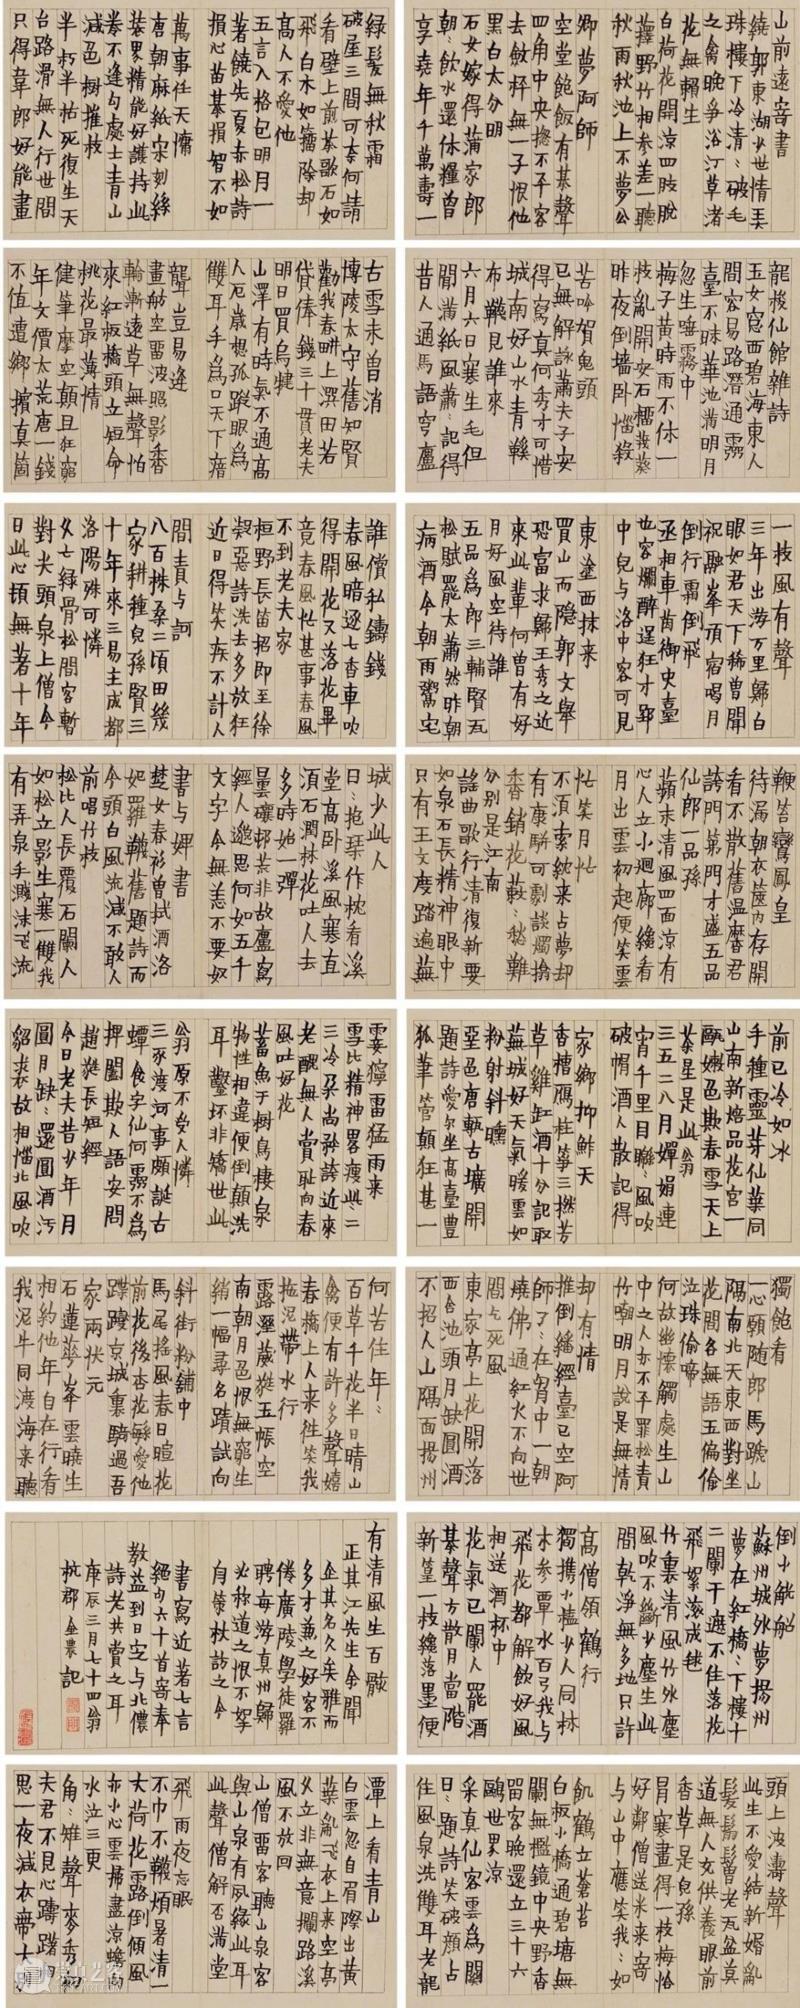 山前遠寄書
繞郭東湖少世情美
珠樓下冷清〻破毛
之禽晚爭浴汀草渚
花無賴生
白荷花開涼四肢脫
擇野竹相參差一聽
秋雨秋池上不夢公
卿夢阿師
空堂飽飯有棊聲
四角中央揔不平客
去斂枰無一子恨他
黑白太分明
石女嫁得蒲家郎
朝〻飲水還休糧曾
享堯年千萬壽一
綠髮無秋霜
破屋三間可奈何請
看壁上前棊歌石如
飛白木如籀除却
高人不愛他
五言入格包明月一
著饒先夏赤松詩
損心苗棊損智不如
萬事任天慵
唐朝麻紙宋刻絲
裝累精能好護持此
卷不逢勾處士青山
減色樹摧枝
半朽半枯死復生天
台路滑無人行世間
只得韋郎好能畫
龍梭仙館雜詩
玉女窗西碧海東人
間容易路潛通露
臺不昧華池滿明月
忽生唾霧中
梅子黃時雨不休一
枝亂開安石榴茙葵
昨夜倒墻卧惱殺
苦吟賀鬼頭
已無解詠蕭夫子安
得寫真何秀才可惜
城南好山水青鞵
布韈見誰來
六月六日寒生毛但
聞滿紙風蕭〻記得
昔人通馬語穹廬
古雪未曾消
博陵太守舊知賢
勸我春畊上澤田若
貸俸錢三十貫老夫
明日買烏犍
山澤有時氣不通高
人厄歲想孤蹤眼為
雙耳手為口天下瘖
聾豈易逢
畫舫空留波照影香
輪漸遠草無聲怕
來紅板橋頭立短命
桃花最薄情
健筆摩空顛且狂窮
年文價太荒唐一錢
不值遭鄉擯真箇
一枝風有聲
三年出游万里歸白
眼如君天下稀曾聞
祝融峯頂宿喝月
倒行霜倒飛
丞相車茵御史臺
也容爛醉逞狂才郅
中兒与洛中客可見
東塗西抹來
買山而隱郭文舉
恐富求歸王秀之近
來此輩何曾有好
月好風空待誰
五品為郎三輔賢瓦
松賦罷太蕭然昨朝
病酒今朝雨鬻宅
誰償私鑄錢
春風暗逐七香車吹
得開花又落花畢
竟春風忙甚事春風
不到老夫家
桓野長笛招即至徐
淑惡詩洗去多放狂
近日得笑疾不計人
間責与訶
八百株桑二頃田幾
家耕種兒孫賢三
十年來三易主成都
洛陽殊可憐
久亡綠骨松間客暫
對尖頭泉上僧今
日此心頓無著十年
鞭笞鸞鳳皇
待漏朝衣篋內存開
看不散舊溫麐君
誇門第門才盛五品
仙郎一品孫
蘋末清風四面涼有
心人立小迴廊纔看
月出雲初起便笑雲
忙笑月忙
不須索紞來占夢却
有康騈可劇談燭猶
香銷花蔌〻愁難
分別是江南
謠曲歌行清復新要
如泉石長精神眼中
只有王文度踏遍蕪
城少此人
日〻抱琹作枕看溪
堂高卧溪風寒直
須石潤林花吐人去
多時始一彈
曇礳邨荒非故廬寫
經人邈思何如五千
文字今無恙不要奴
書与婢書
楚女春衫曾拭酒洛
妃羅韈舊題詩而
今頭白風流減不敢人
前唱竹枝
松比人長覆石闌人
如松立影生寒一雙我
有弄泉手濺沫飛流
前已冷如冰
手種靈芽仙葉同
山南新焙品花宮一
甌嫩色欺春雪天上
茶星是此翁
三五二八月嬋娟連
宵千里目聯〻風吹
破㡌酒人散記得
家鄉抑鮓天
香槽鴈柱箏三撚芳
草雞缸酒十分記取
蕪城好天氣暖雲如
粉射斜曛
堊邑唐甎古壙開
題詩愛尔坐高臺豊
狐筆管顛狂甚一
霎獰雷猛雨來
雪比精神畧瘦些二
三冷朶尚矜誇近來
老醜無人賞耻向春
風吐好花
蓄魚于樹鳥棲泉
物性相違便倒顛洗
耳鑿坏非矯世此
翁原不受人憐
三豕渡河事頗誕古
蟫食字仙何靈不為
捭闔欺人語安問
趙蕤長短經
今日老夫昔少年月
圓月缺〻還圓酒汚
貂裘故相惱北風吹
獨飽看
一心願随郎馬蹏山
隔南北天東西對坐
花間各無語五偏偸
泣珠偷啼
何故幽懷觸處生山
中之人亦不平罪松責
竹嘲明月說是無情
却有情
推倒繙經臺已空阿
師了〻在胷中一朝
燒佛通紅火不向世
間乞死風
東家亭上花開落
西舍池頭月缺圓酒
不招人山隔面揚州
何苦住年〻
百草千花半日晴山
禽便有許多聲嬉
春橋上人来徃笑我
拖泥帶水行
露溼葳蕤五帳空
南朝月色恨無窮生
綃一幅尋名蹟試向
斜街粉舖中
馬尾搖風春日暄花
前花後杏花繁愛他
蹀躞京城裏騎過吾
家兩狀元
石蓮華峯雲曉生
相約他年自在行看
我泥牛同渡海来聽
倒小觥船
蘇州城外夢揚州
夢在紅橋〻下樓十
二闌干遮不住落花
飛絮滚成毬
竹裏清風竹外塵
風吹不斷少塵生此
間乾淨無多地只許
高僧領鶴行
獨携小榼少人同林
木參覃水百弓我与
飛花都解飲好風
相送酒杯中
花氣已闌人罷酒
棊聲方散月當階
新篁一枝纔落墨便
有清風生百骸
正其江先生余聞
企其名久矣雅而
多才兼之好客不
倦廣陵學徒羅
聘每游真州歸
必称道之恨不拏
舟策杖訪之今
書寫近著七言
絕句六十首寄奉
教益到日定与北儂
詩老共賞之耳
庚辰三月七十四翁
杭郡金農記
頭上波濤聲
此生不愛結新婚亂
髮鬅鬙老瓦盆莫
道無人充供養眼前
香草是兒孫
冐寒畫得一枝梅恰
好鄰僧送米来寄
与山中應笑我〻如
飢鶴立蒼苔
白板小橋通碧塘無
闌無檻鏡中央野香
留客晚還立三十六
鷗世界涼
采真仙客雲為關
日〻題詩笑破顏占
住風泉洗雙耳老龍
潭上看青山
白雲忽自眉際出黃
葉亂飛衣上来空亭
久立非無意攔路溪
風不放回
山僧留客聽山泉客
與山泉有夙緣此耳
此聲僧解否滿堂
飛雨夜忘眠
不巾不韈煩暑清一
大荷花露倒傾風
亦小心雲掃盡涼蟾白
水泣三更
角〻雉聲麥秀初
夫君不見心躊躇相
思一夜減衣帶大別